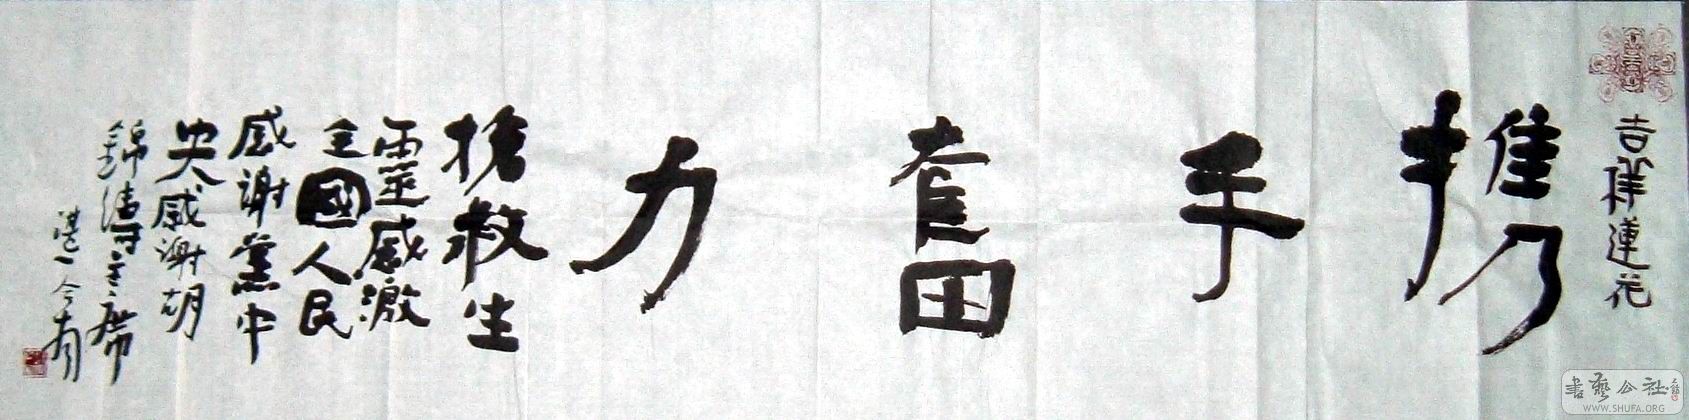 吉祥蓮花
携手奮力
搶救生
靈感激
全國人民
感謝黨中
央感謝胡
錦濤主席
湛一今育
書藝公社
WWW.SHUFA.ORG